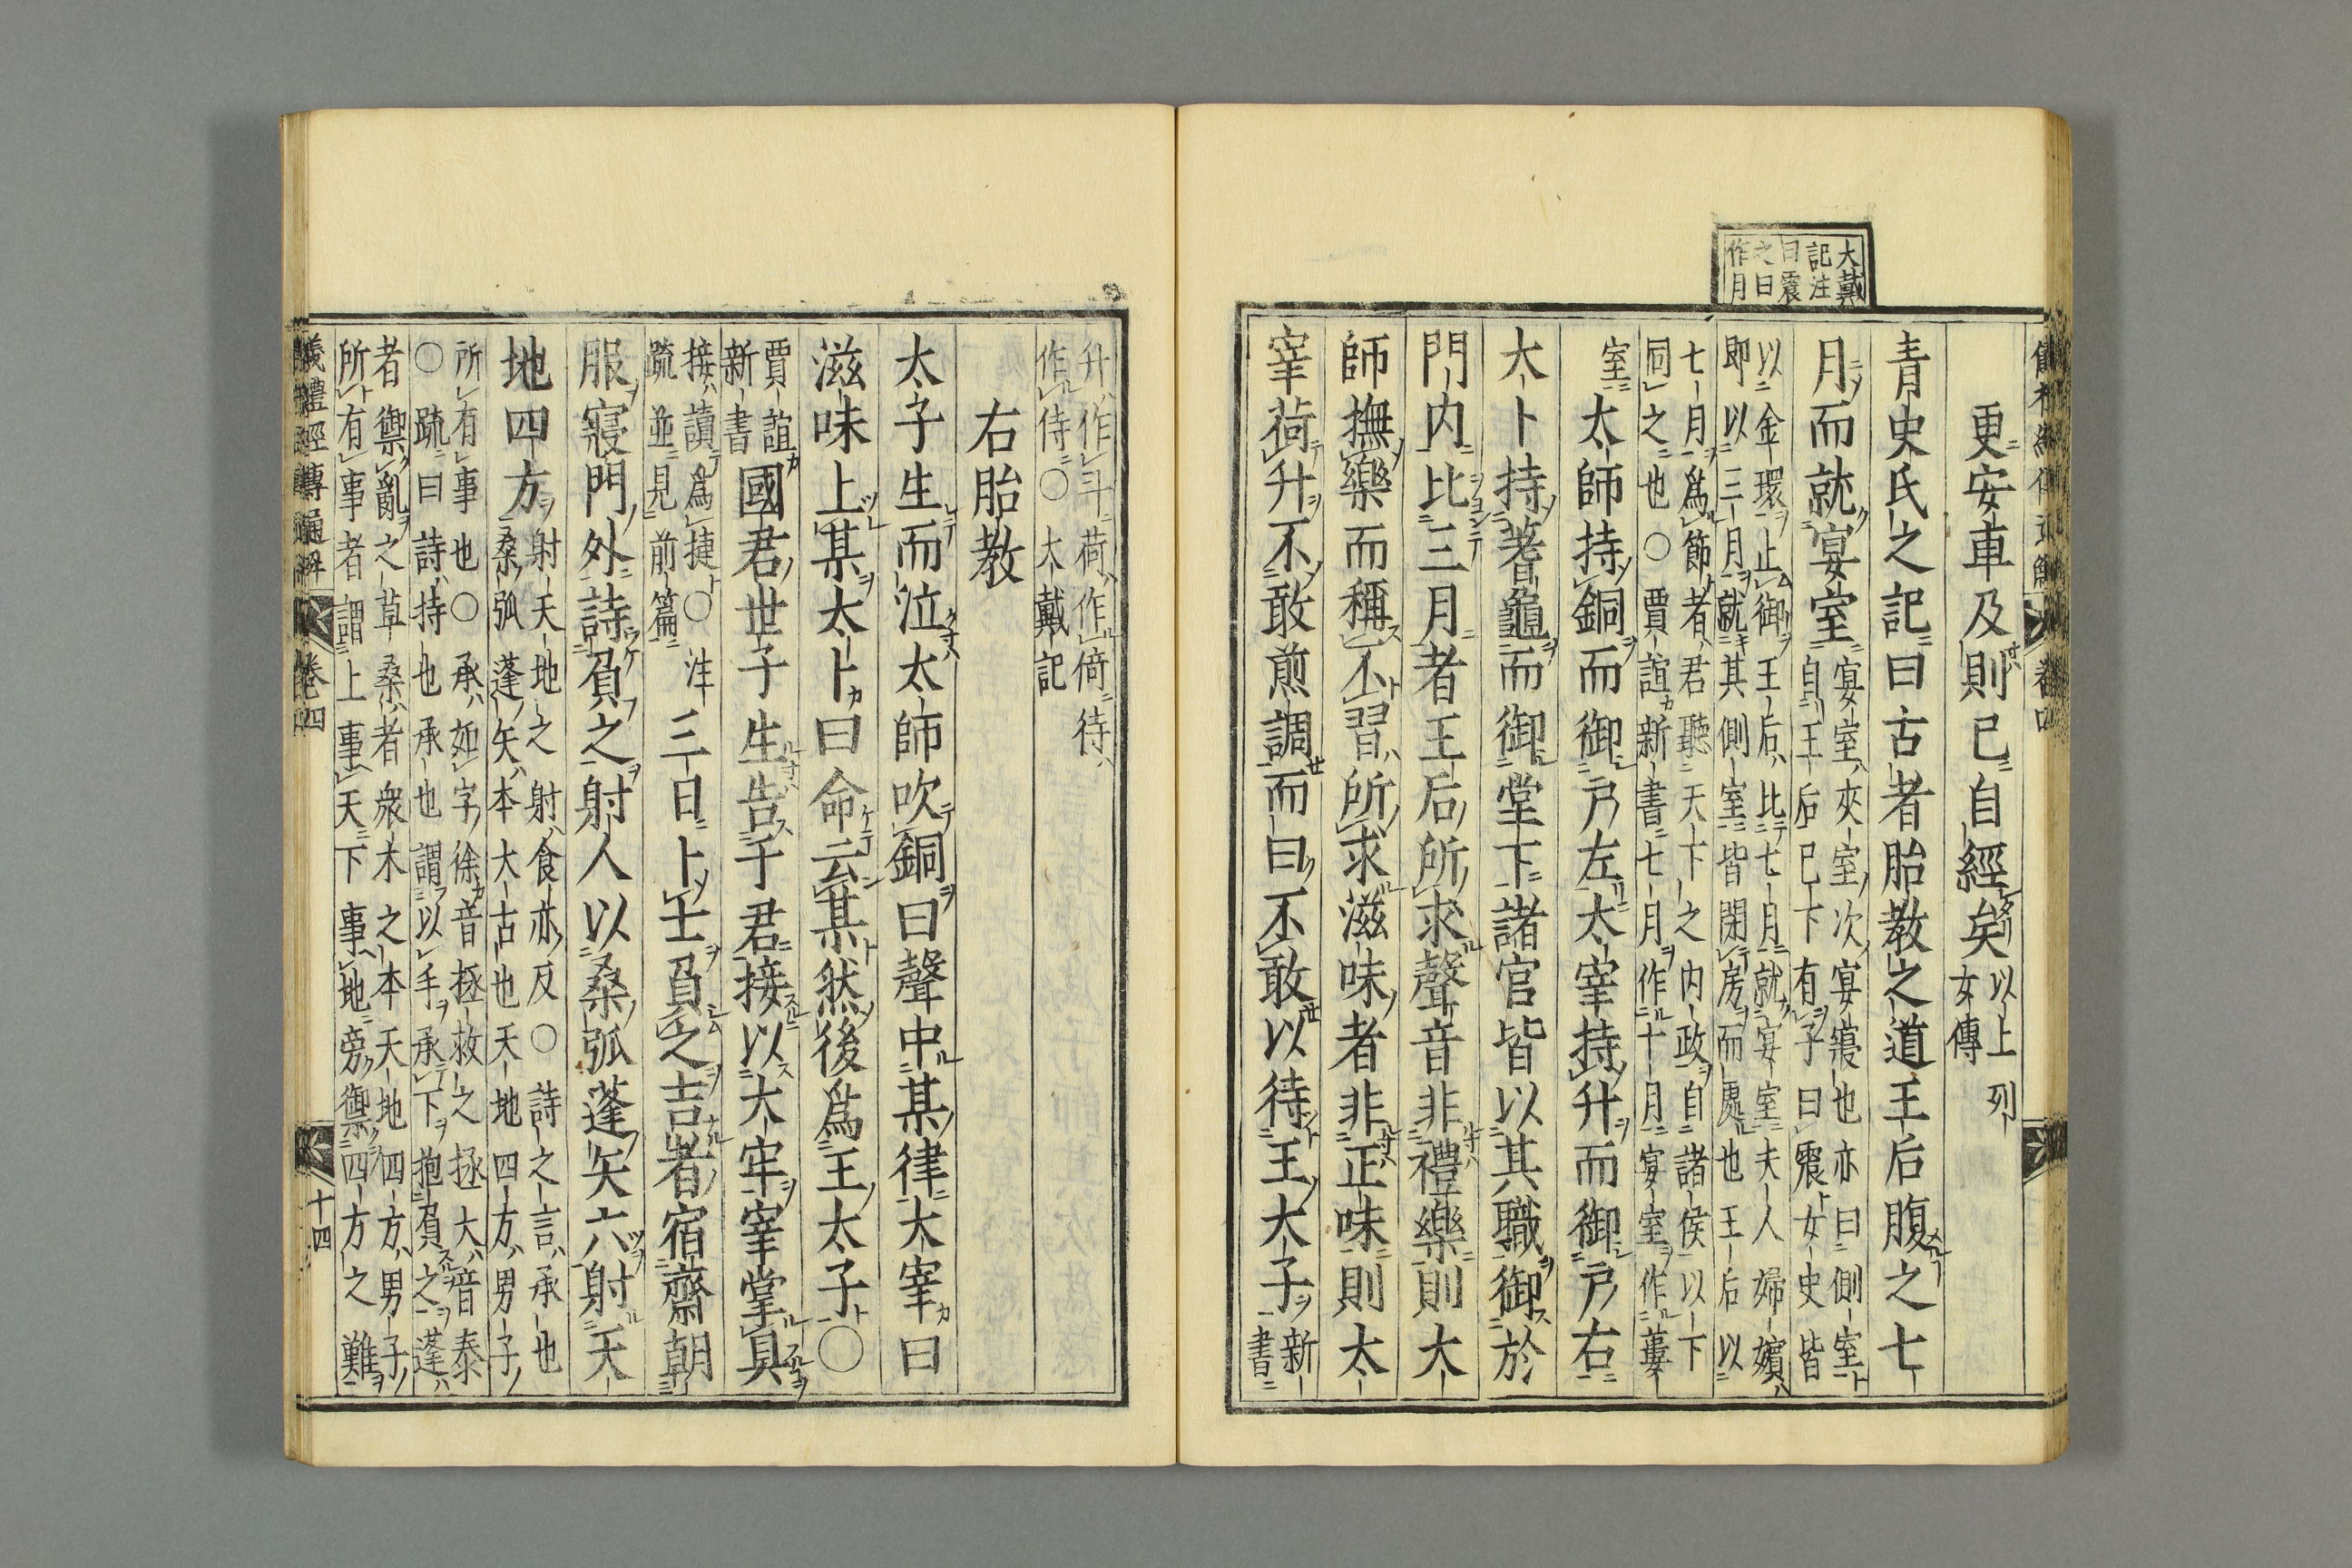 大戴
記注
曰震
之曰
作月
更安車及則已自經矣以上列
女傳
青史氏之記曰古者胎教之道王后腹之七
月而就宴室宴室夾室次宴寢也亦曰側室
自王后已下有子曰震女史皆
以金環止御王后比七月就宴室夫人婦嬪
即以三月就其側室皆閉房而處也王后以
七月爲節者君聽天下之内政自諸侯以下
同之也〇賈誼新書七月作十月宴室作蔞
室太師持銅而御戸左太宰持升而御戸右
大卜持蓍龜而御堂下諸官皆以其職御於
門内比三月者王后所求聲音非禮樂則大
師撫樂而稱不習所求滋味者非正味則太
宰荷升不敢煎調而曰不敢以待王大子新
書
升作斗荷作倚待
作侍〇大戴記
右胎教
太子生而泣太師吹銅曰聲中某律大宰曰
滋味上某太卜曰命云某然後爲王太子〇
賈誼
新書國君世子生告于君接以大牢宰掌具
接讀爲捷〇注
疏並見前篇三日卜士負之吉者宿齋朝
服寢門外詩負之射人以桑弧蓬矢六射天
地四方射天地之射食亦反〇詩之言承也
桑弧蓬矢本大古也天地四方男子
所有事也〇承如字徐音拯救之拯大音泰
〇疏曰詩持也承也謂以手承下抱負之蓬
者禦亂之草桑者衆木之本天地四方男子
所有事者謂上事天下事地旁禦四方之難
儀禮經傳通解
卷四
十四